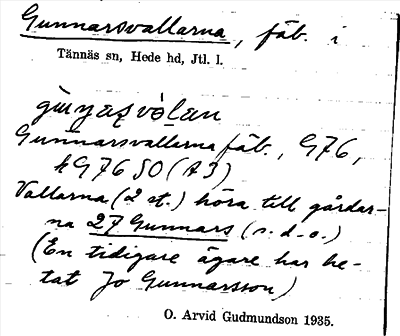 Gunnarsvallarna, fäb. i
Tännäs sn, Hede hd, Jtl. l.
Gunnarsvallarna fäb., G76,
k G76 SO (A3)
Vallarna (2 st.) höra till gårdar-
na 27 Gunnars (s. d. o.)
(En tidigare ägare har he-
tat Jo Gunnarsson)
O. Arvid Gudmundson 1935.